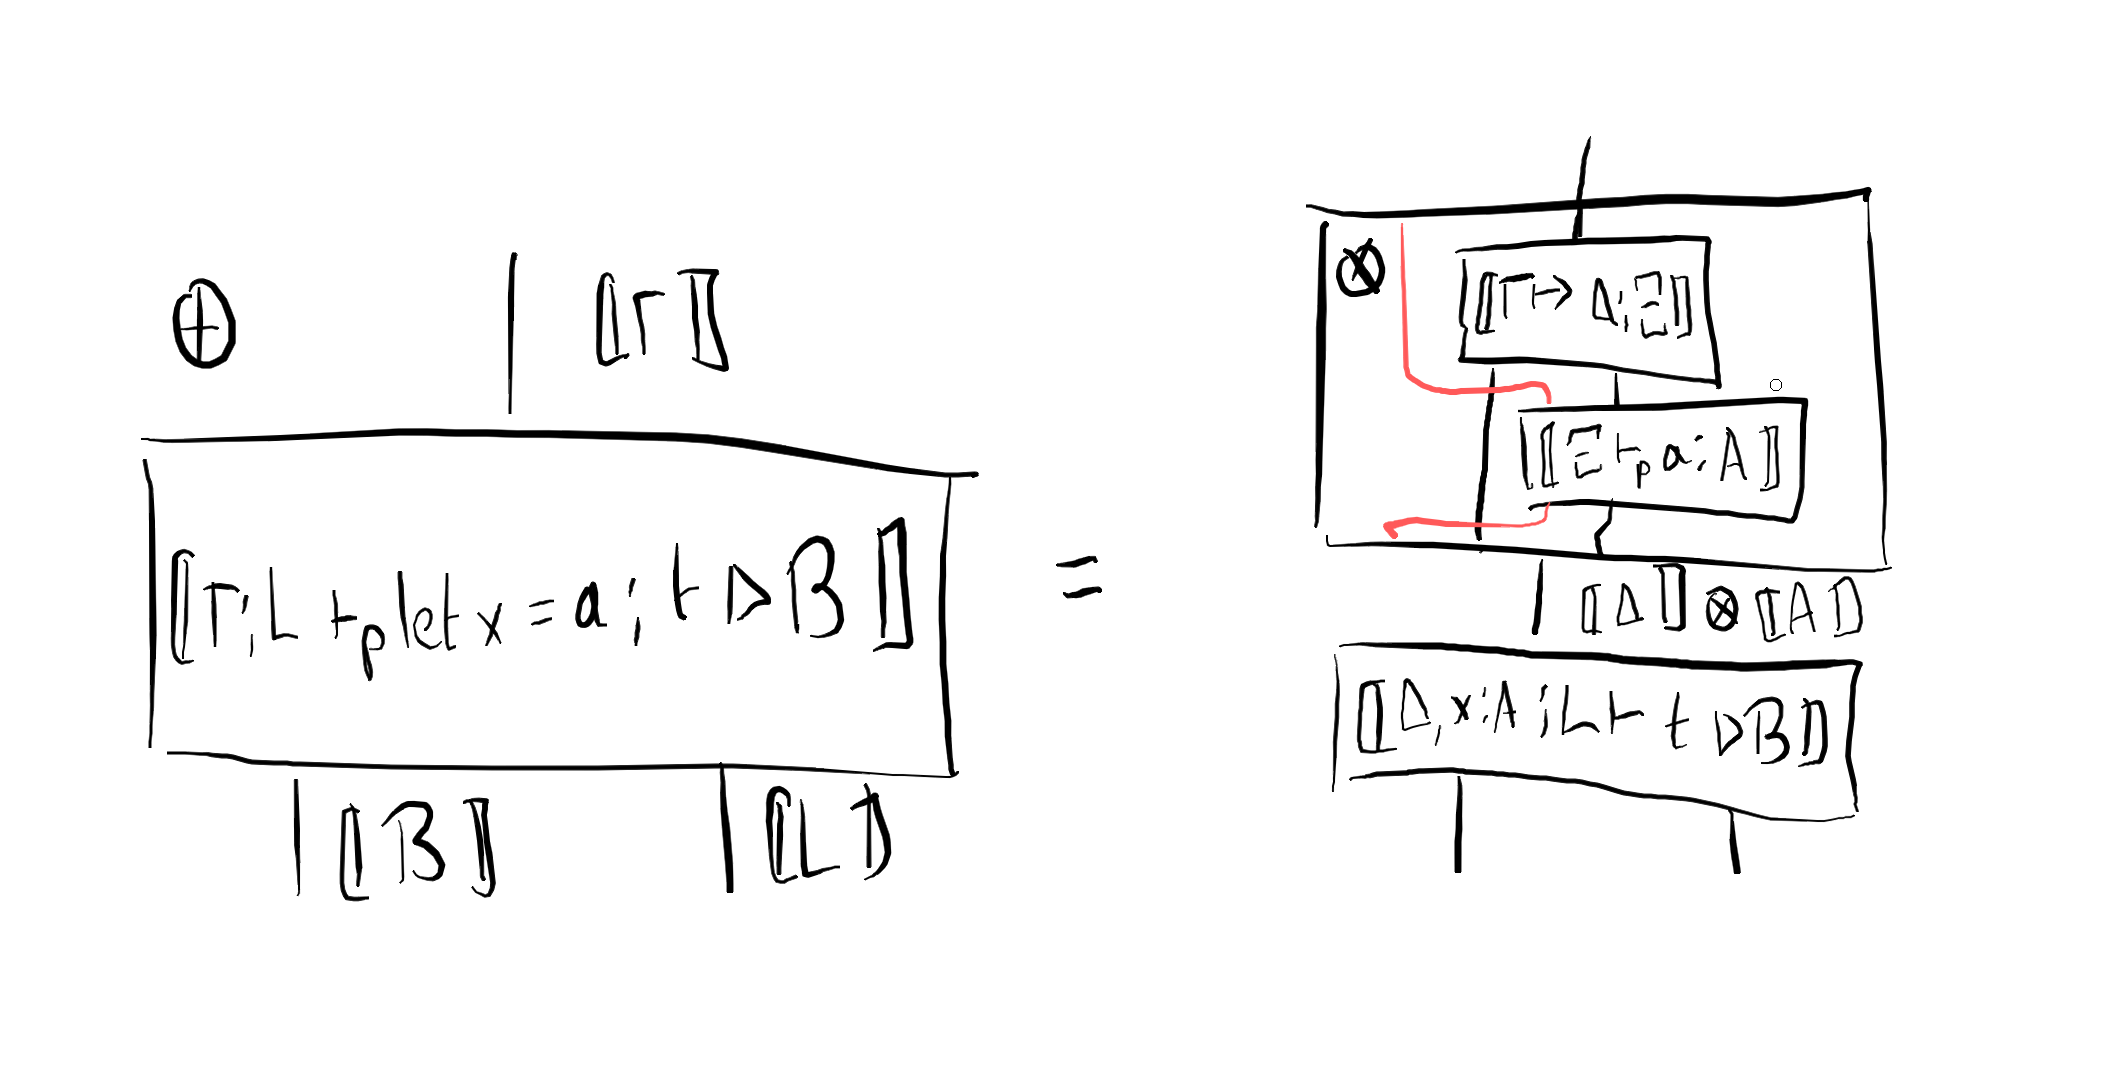 ⊕ ⟦Γ⟧
⟦Γ; L ⊢ₚ let x = a; t ▷ B⟧
⟦B⟧ ⟦L⟧
=
⊗
⟦Γ ↦ Δ; Ξ⟧
⟦Ξ ⊢ₚ a : A⟧
⟦Δ⟧ ⊗ ⟦A⟧
⟦Δ, x : A ; L ⊢ t ▷ B⟧